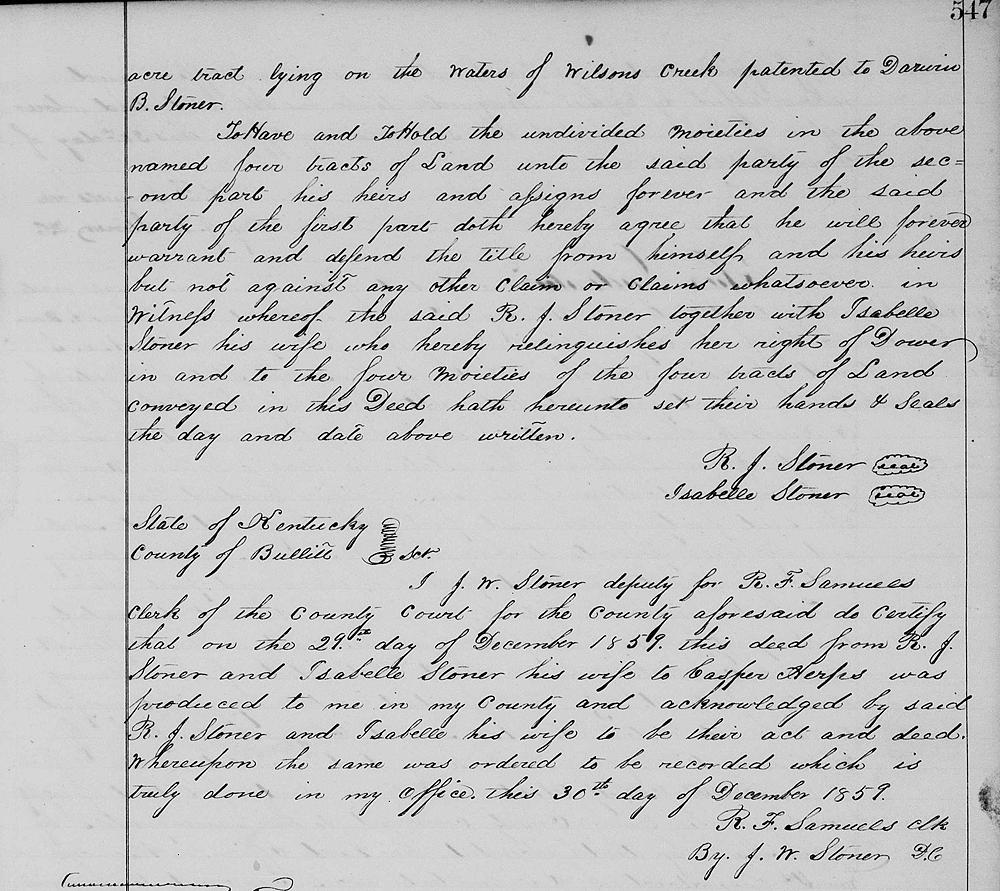 547
acre tract lying on the Waters of Wilsons Creek patented to Darwin
B. Stoner.
To Have and To Hold the undivided Moieties in the above
named four tracts of Land unto the said party of the sec=
ond part his heirs and assigns forever and the said
party of the first part doth hereby agree that he will forever
warrant and defend the title from himself and his heirs
but not against any other Claim or Claims whatsoever. in
Witness whereof the said R. J. Stoner together with Isabelle
Stoner his wife who hereby relinquishes her right of Dower
in and to the four Moieties of the four tracts of Land
Conveyed in this Deed hath hereunto set their hands & Seals
the day and date above written.
R. J. Stoner seal
Isabelle Stoner seal
State of Kentucky
County of Bullitt Sct.
I J. W. Stoner deputy for R. F. Samuels
Clerk of the County Court for the County aforesaid do Certify
that on the 29.st day of December 1859. this deed from R. J.
Stoner and Isabelle Stoner his wife to Casper Herps was
produced to me in my County and acknowledged by said
R. J. Stoner and Isabelle his wife to be their act and deed.
Whereupon the same was ordered to be recorded which is
truly done in my Office. this 30th day of December 1859.
R. F. Samuels Clk
By. J. W. Stoner D.C